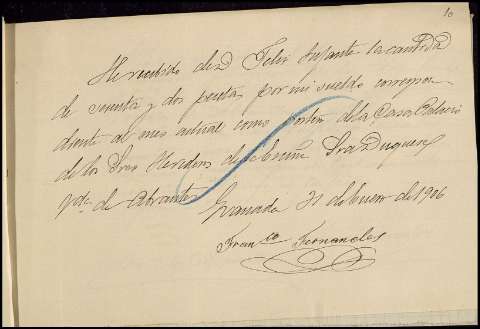 10
He recibido de D Felix Infante la cantidad
de sesenta y dos pesetas por mi sueldo correspon
diente al mes actual como portero de la Casa Palacio
de los Sres Herederos de la Excma Sra Duquesa
de Abrantes
Granada 31 de Enero de 1906
Franco Fernandez